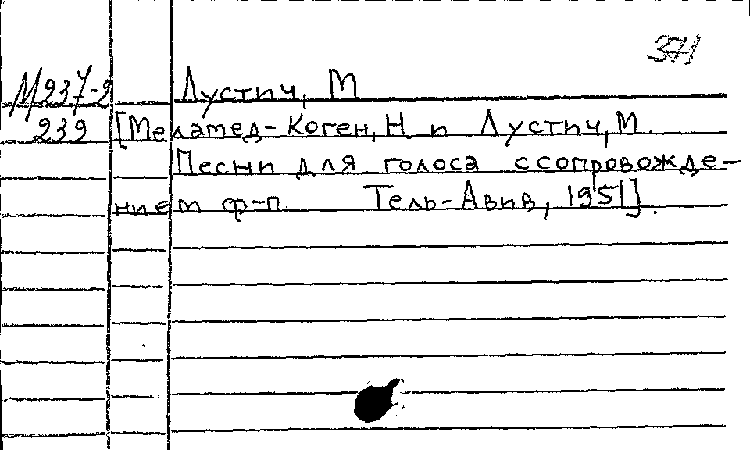 371
М937-2 Лустич, М
239 [Меламед-Коген, Н и Лустич, М.
Песни для голоса с сопровожде-
нием ф-п. Тель-Авив, 1951].